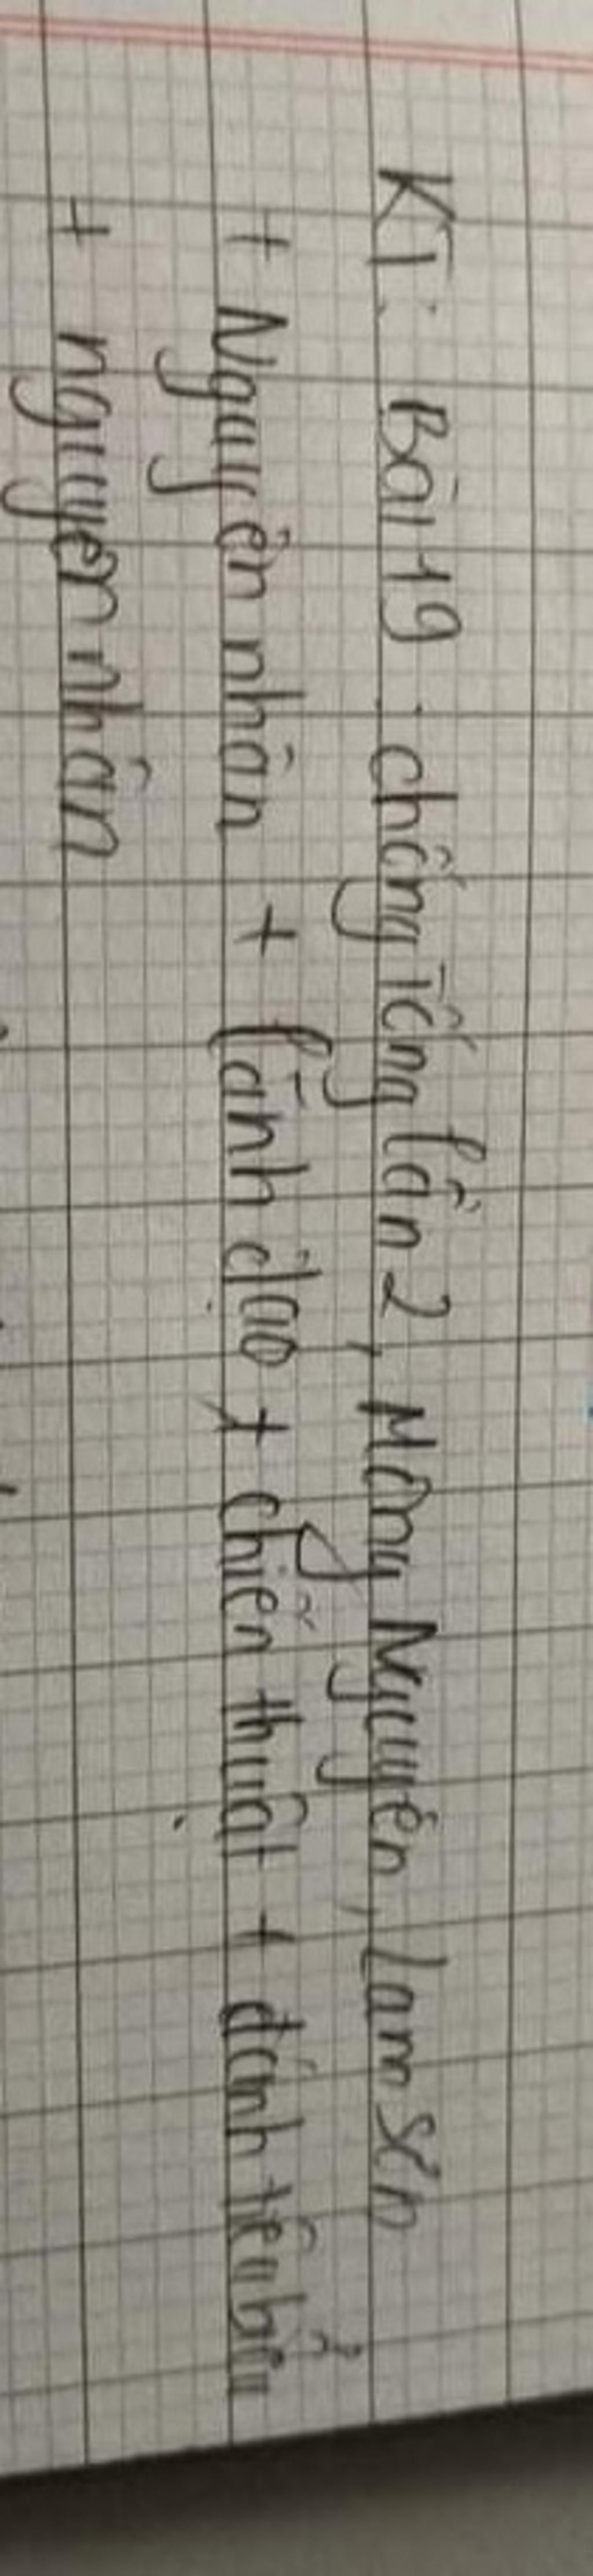 KT: Bài 19: chống Tống lần 2, Mông Nguyên, Lam Sơn
+ Nguyên nhân + lãnh đạo + chiến thuật + đánh tiêu biểu
+ nguyên nhân